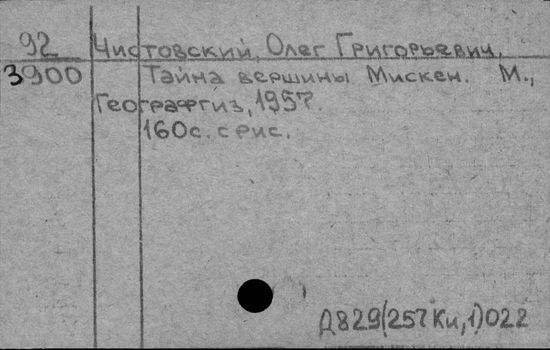 92 Чистовский, Олег Григорьевич.
3900 Тайна вершины Мискен. М.,
Географгиз, 1957.
160с. с рис.
Д829(257Ки,1)022